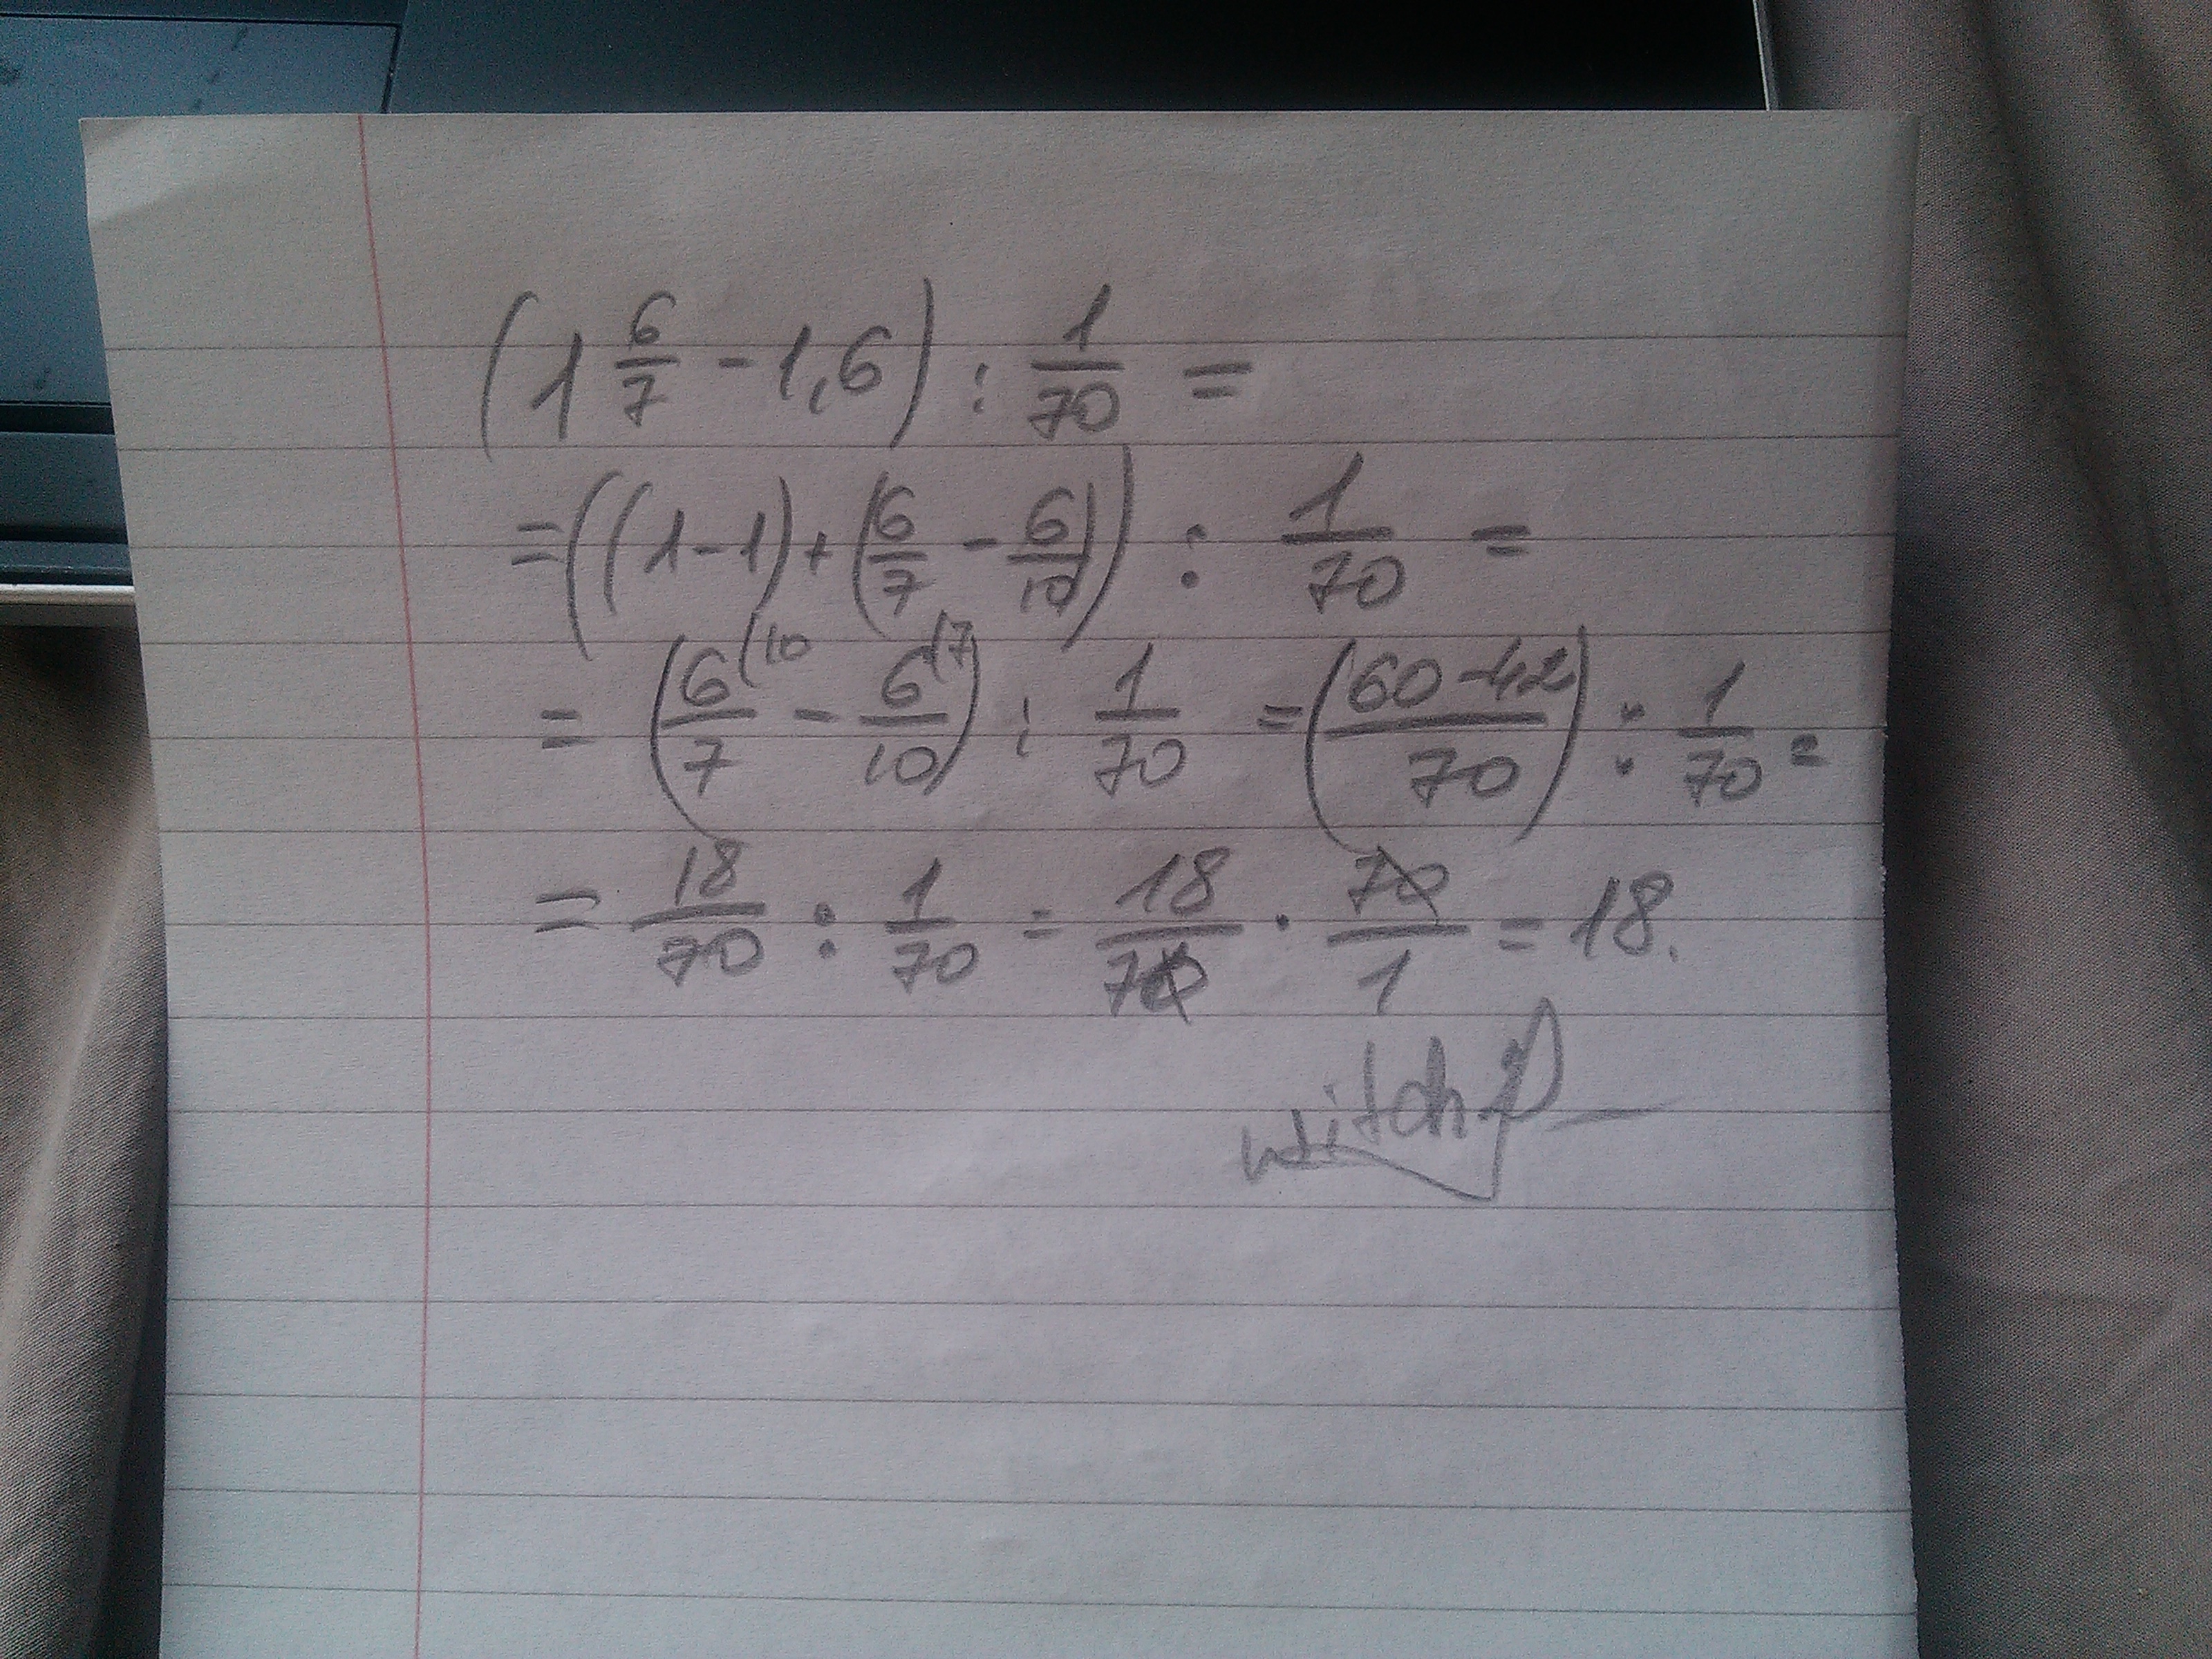 (1 6/7 - 1,6) : 1/70 =
= ((1-1) + (6/7 - 6/10)) : 1/70 =
= (6/7 (10 - 6/10 (7) : 1/70 = (60-42/70) : 1/70 =
= 18/70 : 1/70 = 18/70 · 70/1 = 18.